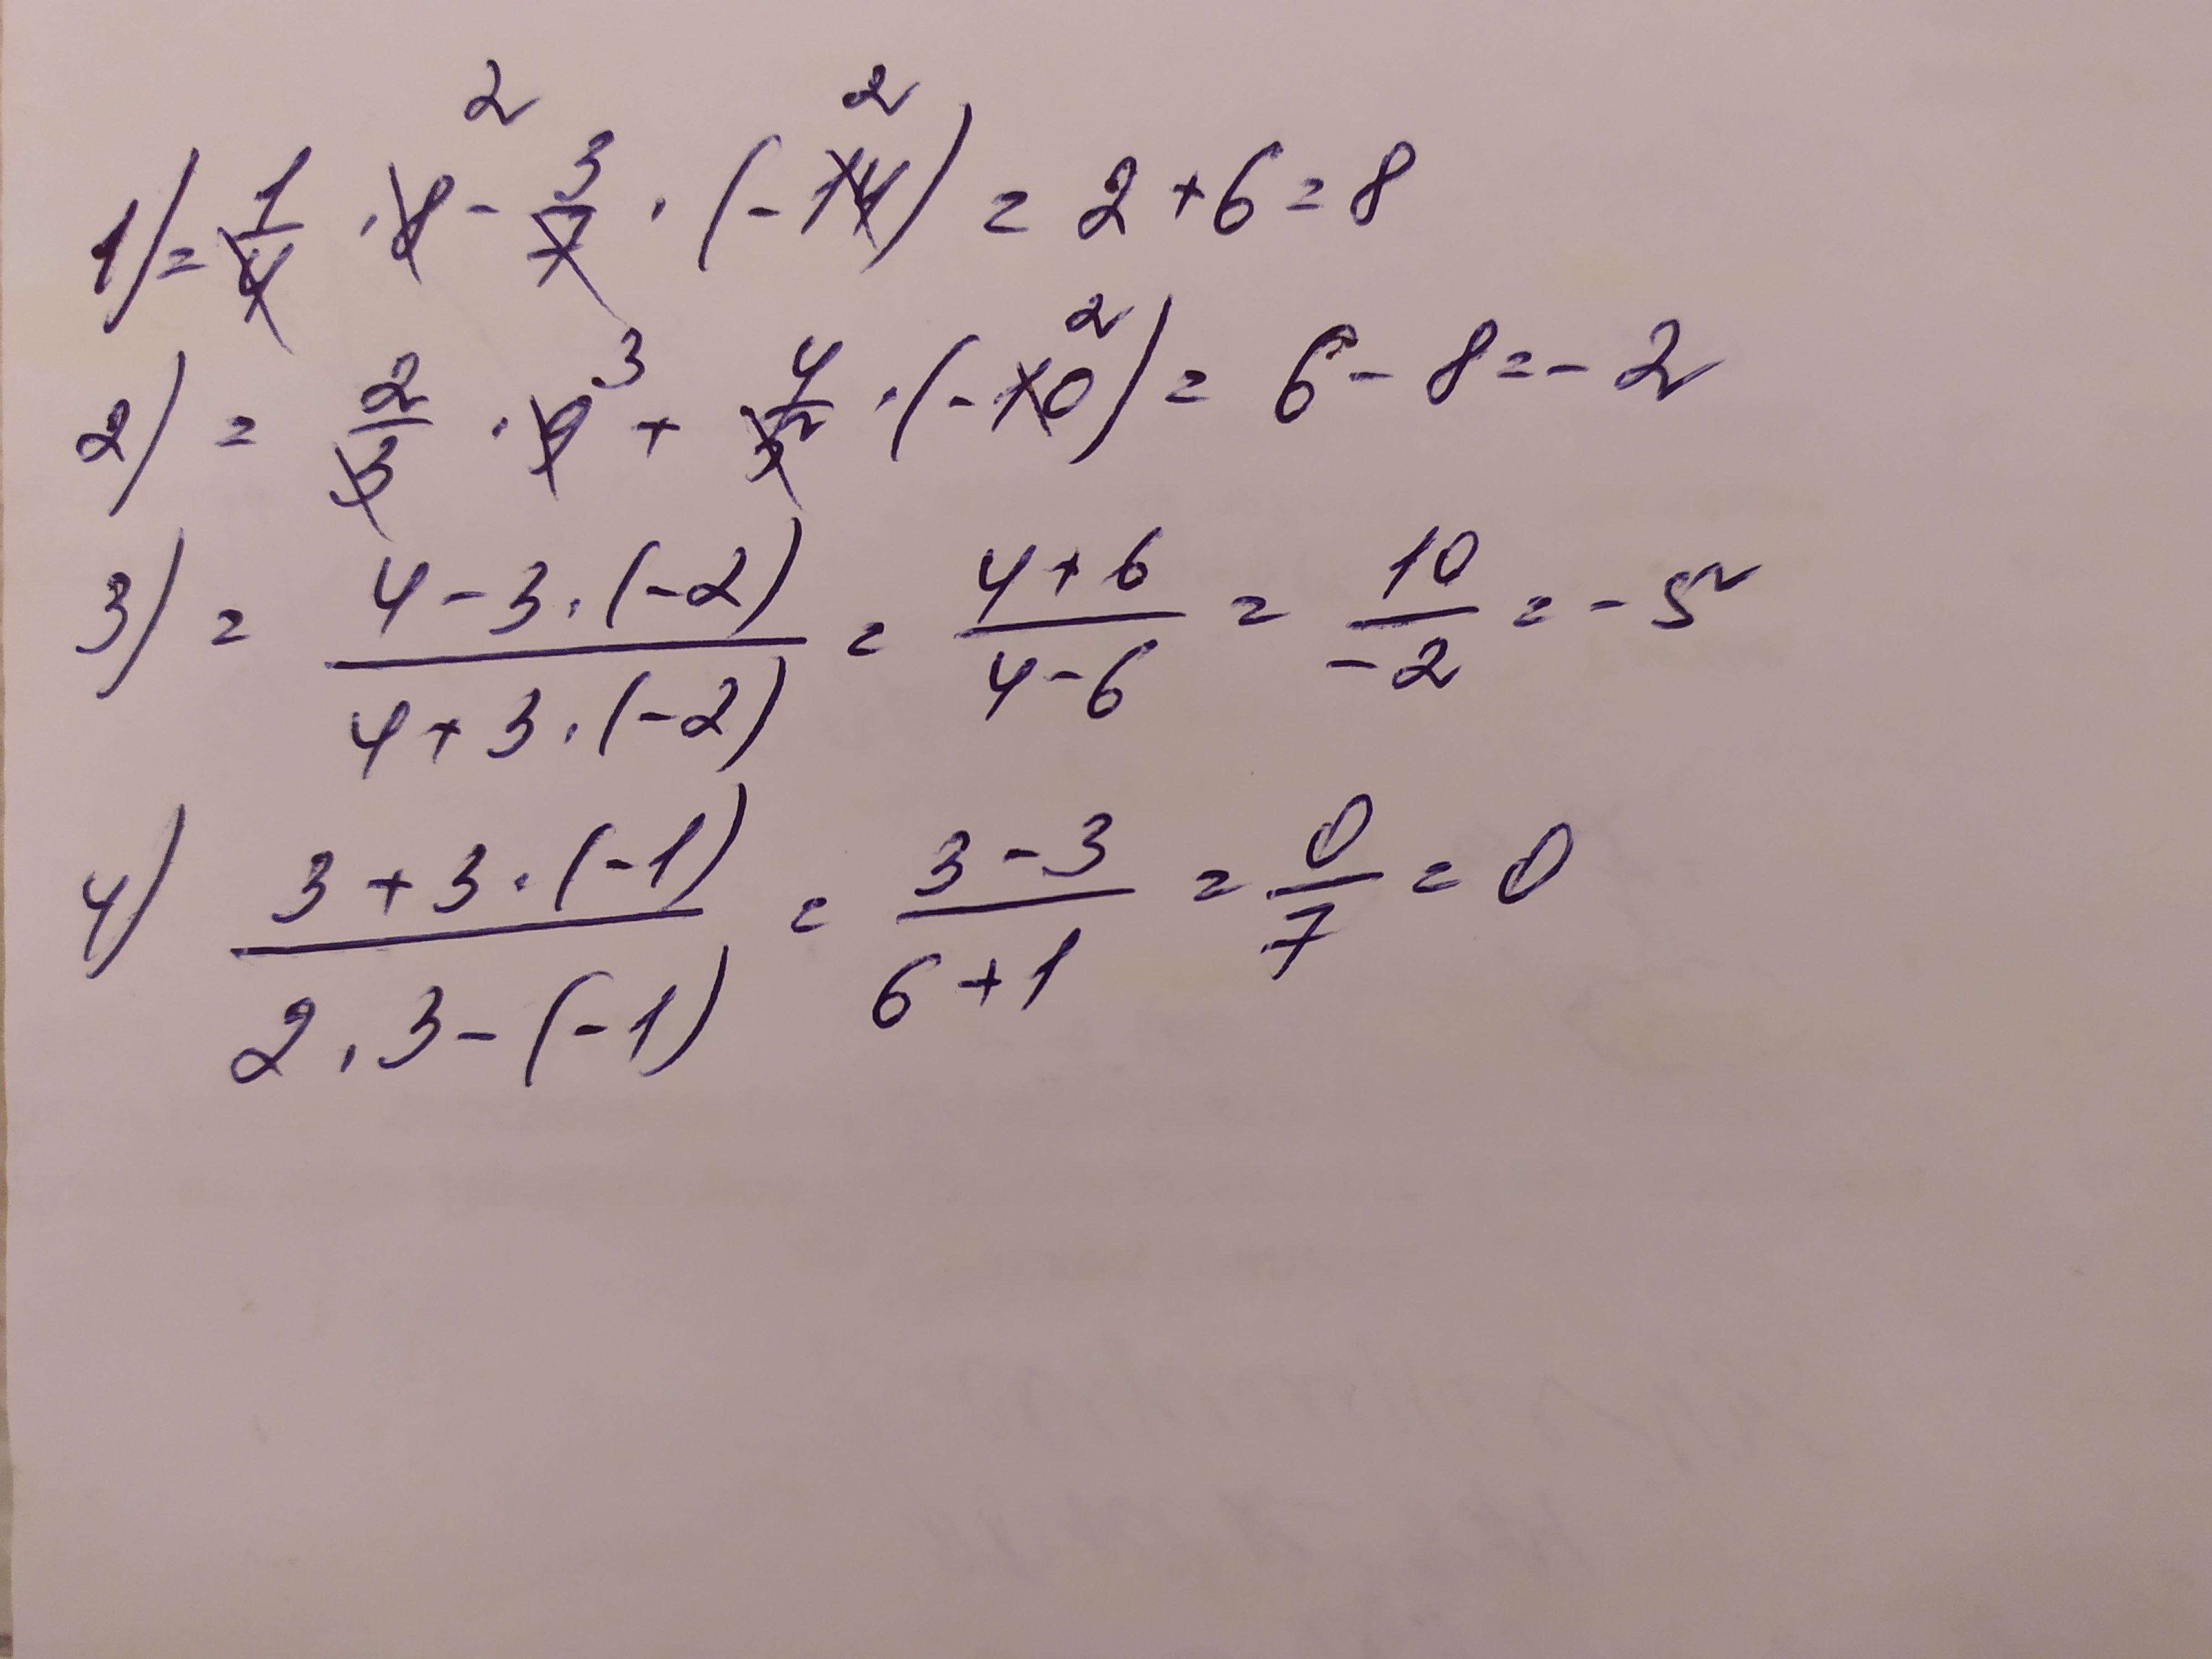 1) = 1/4 · 8² - 3/7 · (-14²) = 2 + 6 = 8
2) = 2/3 · 9³ + 4/5 · (-10²) = 6 - 8 = -2
3) = (4 - 3 · (-2))/(4 + 3 · (-2)) = (4 + 6)/(4 - 6) = 10/-2 = -5
4) (3 + 3 · (-1))/(2 · 3 - (-1)) = (3 - 3)/(6 + 1) = 0/7 = 0